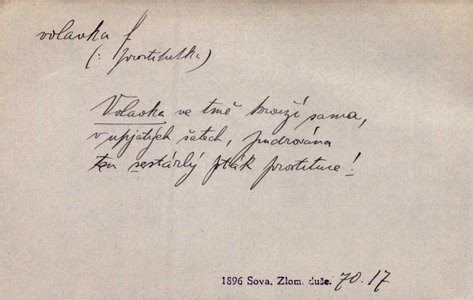 volavka f
(: prostitutka)
Volavka ve tmě krouží sama,
v upjatých šatech, pudrována
ten sestárlý pták prostituce!
1896 Sova, Zlom. duše. 70.17